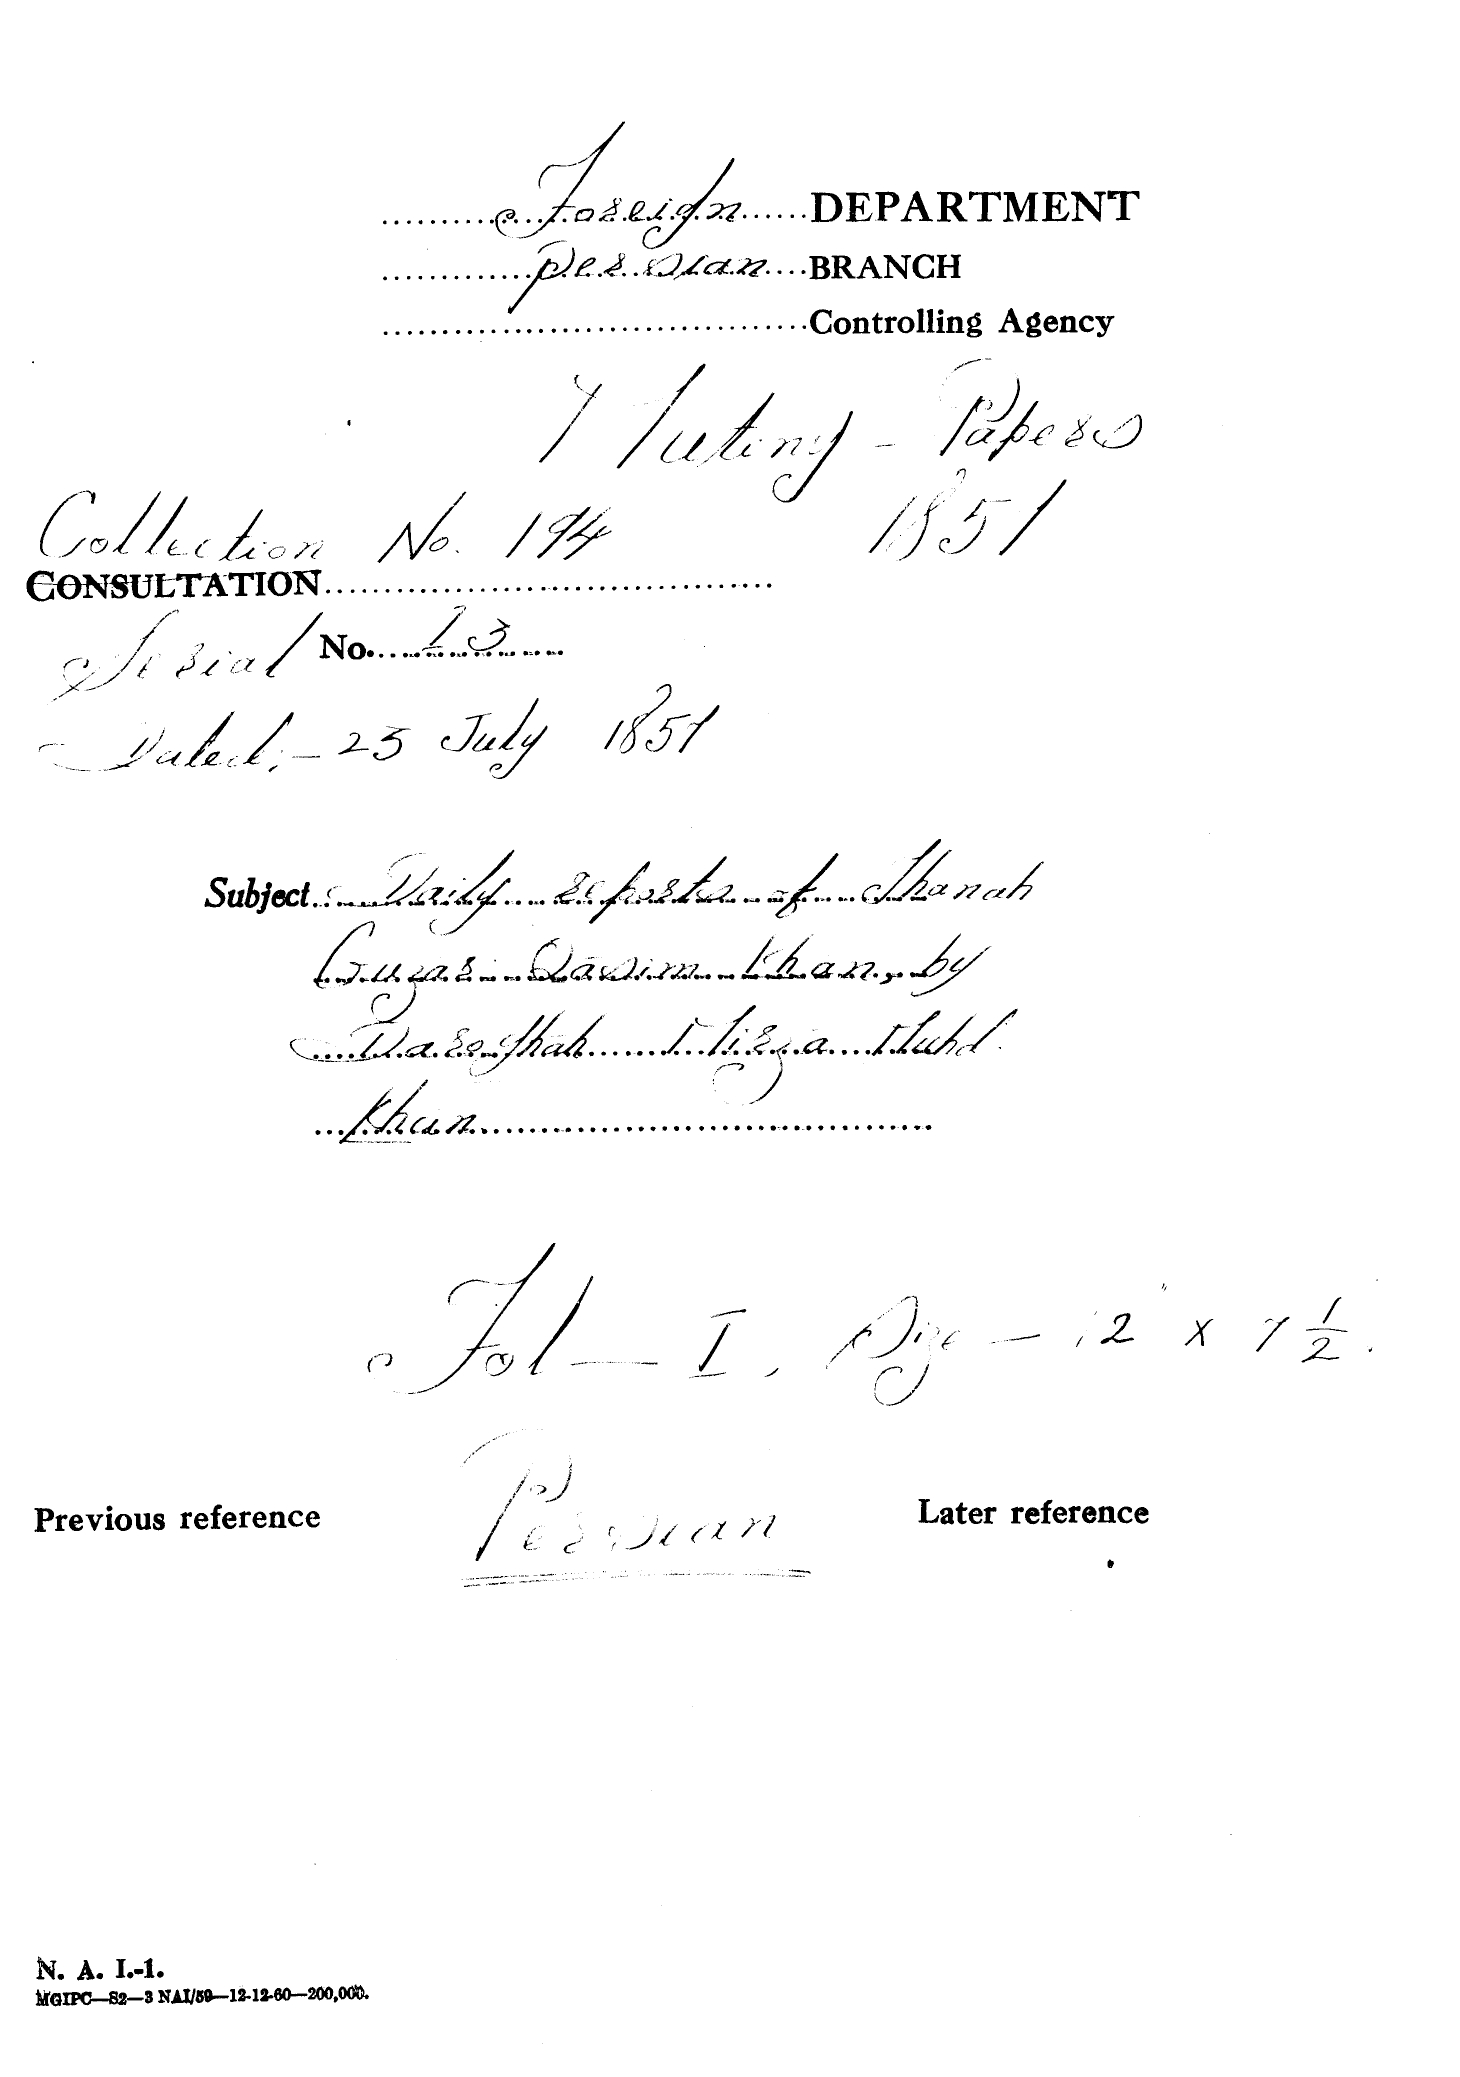 Foreign DEPARTMENT
Persian BRANCH
Controlling Agency
Mutiny - Papers
1857
Collection No. 194
CONSULTATION
Serial No. 13
Dated:- 23 July 1857
Subject:- Daily reports of Thanah
Guzar Qasim Khan, by
Daroghah Mirza Muhd.
Khan
Fol — I, Size — 12" x 7 1/2.
Persian
Previous reference Later reference
N. A. I.-1.
MGIPC—S2—3 NAI/59—12-12-60—200,000.